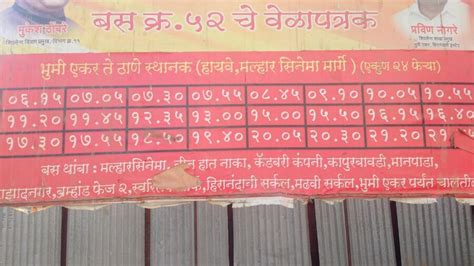 बस क्र.५२ चे वेळापत्रक
मुकेश ठोंबरे
प्रविण नागरे
भुमी एकर ते ठाणे स्थानक (हायवे,मल्हार सिनेमा मार्गे ) (एकुण २४ फेऱ्या)
०६.१५ ०७.०५ ०७.३० ०७.५५ ०८.४५ ०९.१० १०.०५ १०.५५
११.२० ११.४५ १२.३५ १३.०० १३.२५ १४.१५ १६.१५ १६.४०
१७.३० १७.५५ १८.५० १९.४० २०.०५ २०.३० २१.२० २१
बस थांबा : मल्हारसिनेमा, तीन हात नाका, कॅडबरी कंपनी,कापुरबावडी,मानपाडा,
आझादनगर,ब्रम्हांड फेज २, हिरानंदानी सर्कल,मढवी सर्कल,भुमी एकर पर्यंत चालतील